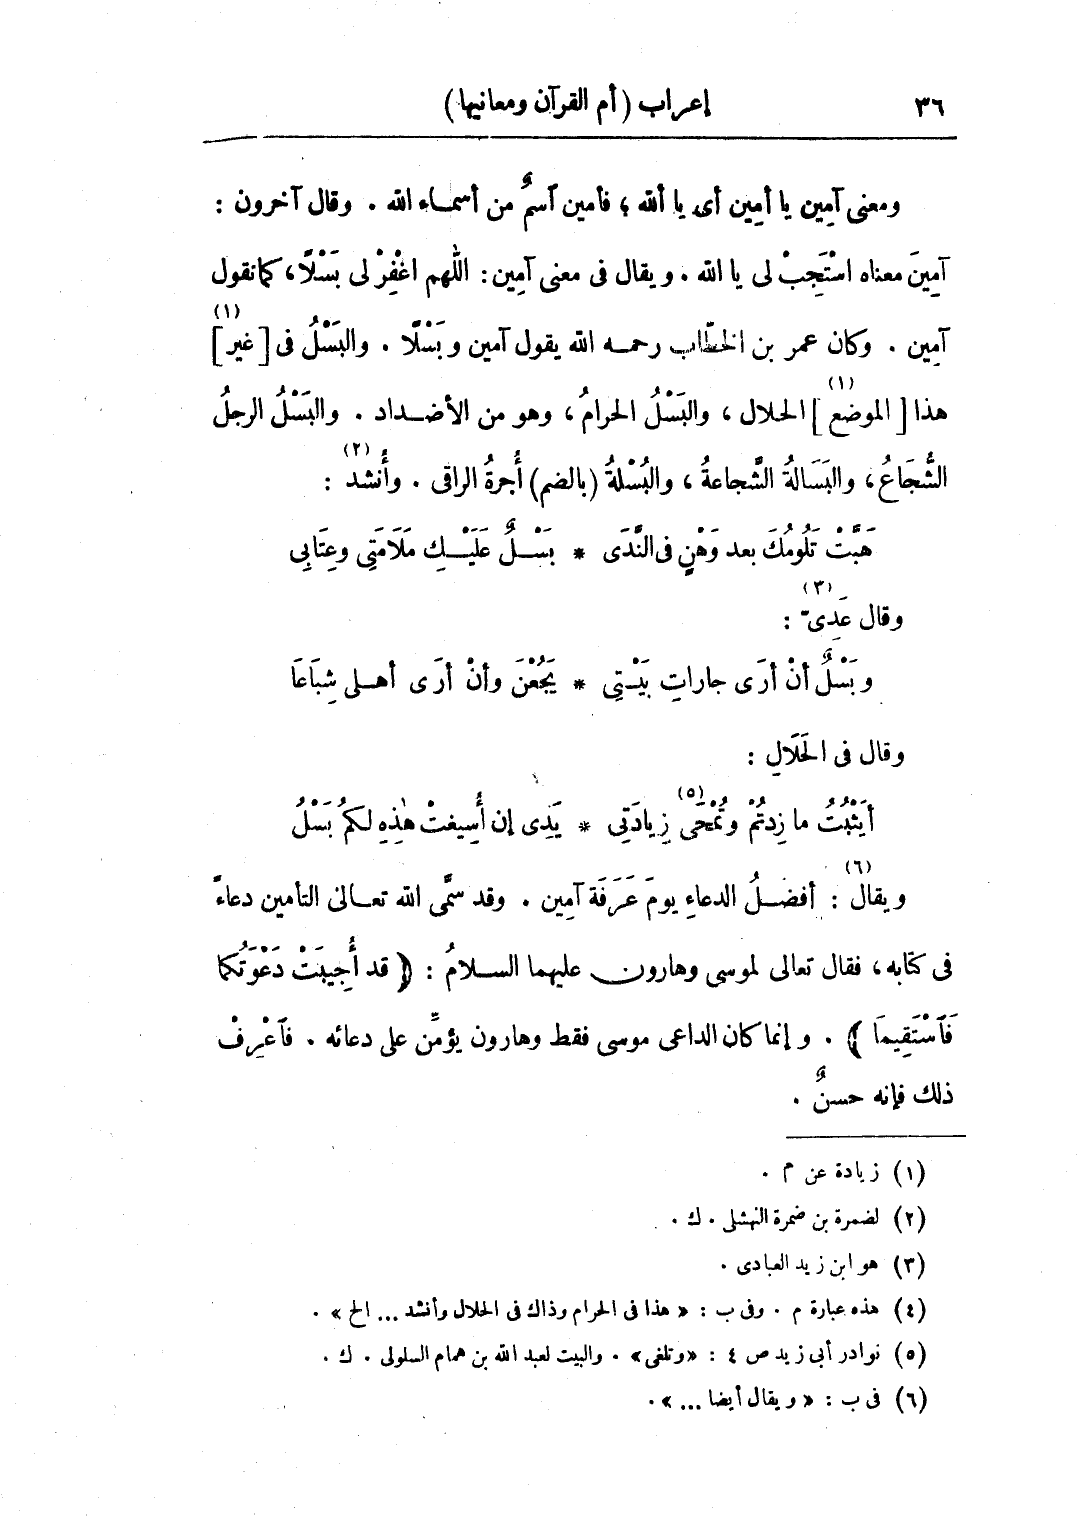 ٣٦ إعراب (أم القرآن ومعانيها)
ومعنى آمين يا أمين أى يا ألله ؛ فأمين ٱسمٌ من أسماء الله . وقال آخرون :
آمِينَ معناه اسْتَجِبْ لى يا الله . ويقال فى معنى آمِين : اللّٰهم اغْفِرْ لى بَسْلًا ، كما نقول
آمِين . وكان عمر بن الخطّاب رحمه الله يقول آمين وبَسْلًا . والبَسْلُ فى [غير] (١)
هذا [الموضع] (١) الحلال ، والبَسْلُ الحرامُ ، وهو من الأضداد . والبَسْلُ الرجلُ
الشُّجَاعُ ، والبَسَالةُ الشَّجاعةُ ، والبُسْلةُ (بالضم) أُجرةُ الراقى . وأُنشد (٢) :
هَبَّتْ تَلُومُكَ بعد وَهْنٍ فى النَّدَى * بَسْلٌ عَلَيْكِ مَلَامَتِى وعِتَابِى
وقال عَدِىّ (٣) :
وبَسْلٌ أنْ أرَى جاراتِ بَيْتِى * يَجُعْنَ وأنْ أرَى أهلى شِبَاعَا
وقال فى الحَلَالِ :
أيَثْبُتُ ما زِدتُمْ وتُمْحَى (٥) زِيادَتِى * يَدِى إن أُسِيغتْ هٰذِهِ لكمُ بَسْلُ
ويقال (٦) : أفضلُ الدعاءِ يومَ عَرَفَة آمِين . وقد سمَّى الله تعالى التأمين دعاءً
فى كتابه ، فقال تعالى لموسى وهارون عليهما السلامُ : ﴿ قد أُجِيبَتْ دَعْوَتُكما
فَٱسْتَقِيمَا ﴾ . وإنما كان الداعى موسى فقط وهارون يؤمِّن على دعائه . فٱعْرِفْ
ذلك فإنه حسنٌ .
(١) زيادة عن م .
(٢) لضمرة بن ضمرة النهشلى . ك .
(٣) هو ابن زيد العبادى .
(٤) هذه عبارة م . وفى ب : « هذا فى الحرام وذاك فى الحلال وأنشد ... الخ » .
(٥) نوادر أبى زيد ص ٤ : «وتلغى» . والبيت لعبد الله بن همام السلولى . ك .
(٦) فى ب : « ويقال أيضا ... » .